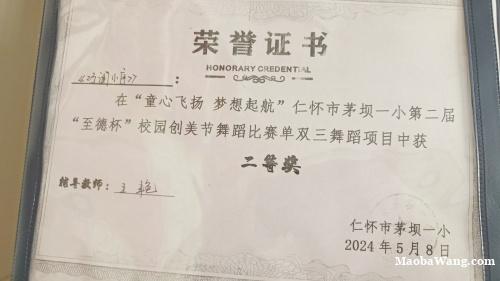 荣誉证书
HONORARY CREDENTIAL
在“童心飞扬 梦想起航”仁怀市茅坝一小第二届
“至德杯”校园创美节舞蹈比赛单双三舞蹈项目中获
二等奖
辅导教师：王艳
仁怀市茅坝一小
2024年5月8日
MaobaWang.com